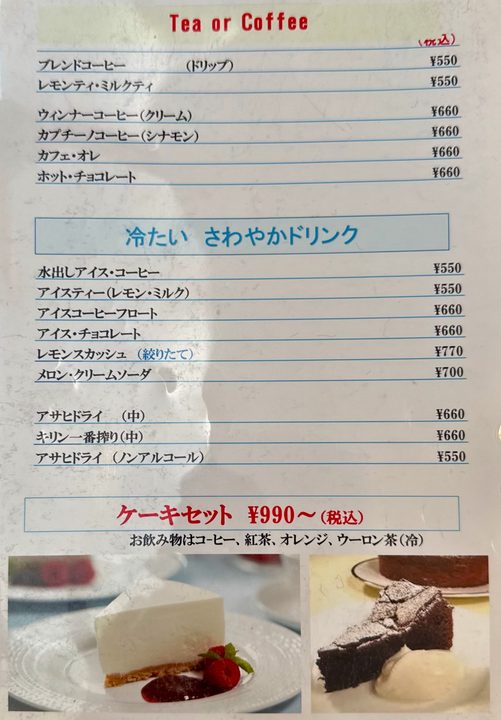 Tea or Coffee
(税込)
ブレンドコーヒー (ドリップ) ¥550
レモンティ・ミルクティ ¥550
ウィンナーコーヒー(クリーム) ¥660
カプチーノコーヒー(シナモン) ¥660
カフェ・オレ ¥660
ホット・チョコレート ¥660
冷たい さわやかドリンク
水出しアイス・コーヒー ¥550
アイスティー(レモン・ミルク) ¥550
アイスコーヒーフロート ¥660
アイス・チョコレート ¥660
レモンスカッシュ (絞りたて) ¥770
メロン・クリームソーダ ¥700
アサヒドライ (中) ¥660
キリン一番搾り(中) ¥660
アサヒドライ (ノンアルコール) ¥550
ケーキセット ¥990～(税込)
お飲み物はコーヒー、紅茶、オレンジ、ウーロン茶(冷)